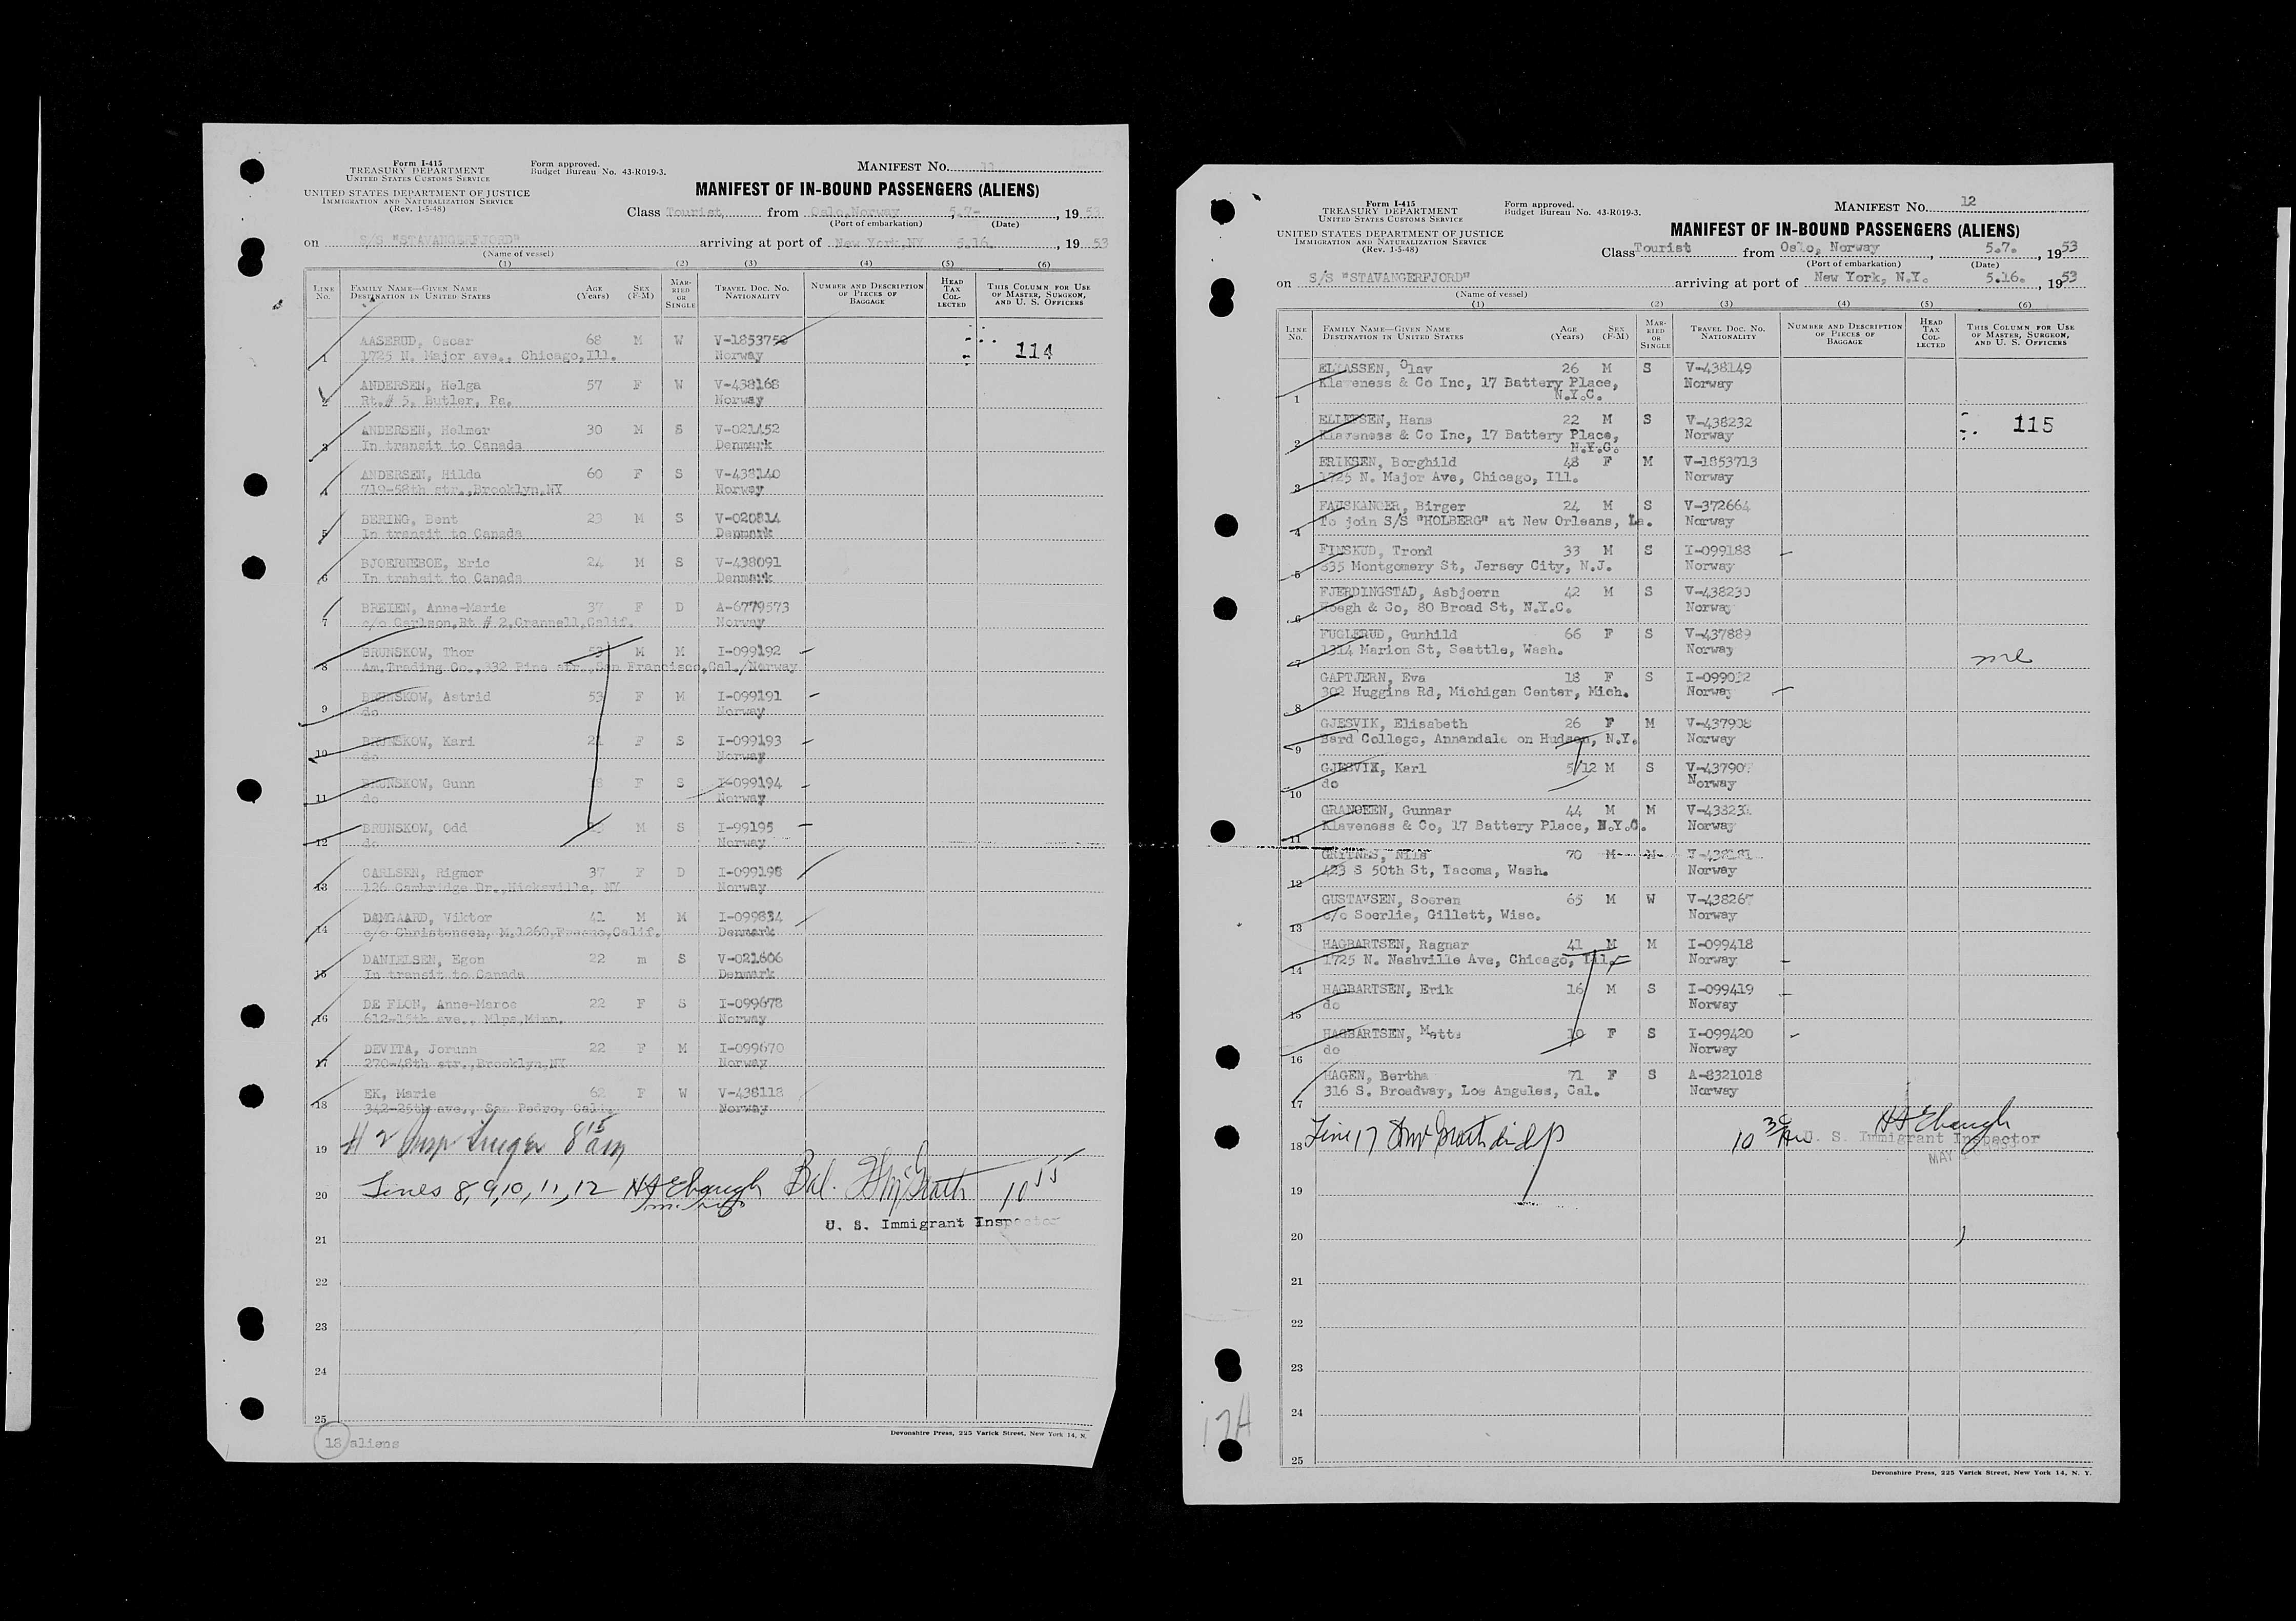 Form I-415
TREASURY DEPARTMENT
UNITED STATES CUSTOMS SERVICE
UNITED STATES DEPARTMENT OF JUSTICE
IMMIGRATION AND NATURALIZATION SERVICE
(Rev. 1-5-48)
Form approved.
Budget Bureau No. 43-R019-3.
MANIFEST NO. 11
MANIFEST OF IN-BOUND PASSENGERS (ALIENS)
Class Tourist from Oslo, Norway 5.7- , 19 53
(Port of embarkation) (Date)
on S/S "STAVANGERFJORD" arriving at port of New York, NY 5.16. , 19 53
(Name of vessel)
(1) (2) (3) (4) (5) (6)
LINE NO. FAMILY NAME—GIVEN NAME DESTINATION IN UNITED STATES AGE (Years) SEX (F-M) MARRIED OR SINGLE TRAVEL DOC. NO. NATIONALITY NUMBER AND DESCRIPTION OF PIECES OF BAGGAGE HEAD TAX COLLECTED THIS COLUMN FOR USE OF MASTER, SURGEON, AND U. S. OFFICERS
AASERUD, Oscar 68 M W V-1853750
1 1725 N. Major ave., Chicago, Ill. Norway 114
ANDERSEN, Helga 57 F W V-438168
2 Rt.# 5, Butler, Pa. Norway
ANDERSEN, Helmer 30 M S V-021452
3 In transit to Canada Denmark
ANDERSEN, Hilda 60 F S V-438140
4 719-58th str., Brooklyn, NY Norway
BERING, Bent 23 M S V-020814
5 In transit to Canada Denmark
BJOERNEBOE, Eric 24 M S V-438091
6 In transit to Canada Denmark
BREIEN, Anne-Marie 37 F D A-6779573
7 c/o Carlson, Rt # 2, Crannell, Calif. Norway
BRUNSKOW, Thor 53 M M I-099192
8 Am. Trading Co., 332 Pine str., San Francisco, Cal./Norway
BRUNSKOW, Astrid 53 F M I-099191
9 do Norway
BRUNSKOW, Kari 21 F S I-099193
10 do Norway
BRUNSKOW, Gunn F S I-099194
11 do Norway
BRUNSKOW, Odd M S I-99195
12 do Norway
CARLSEN, Rigmor 37 F D I-099198
13 126 Cambridge Dr., Hicksville, NY Norway
DAMGAARD, Viktor 41 M M I-099834
14 c/o Christensen, M.1260, Fresno, Calif. Denmark
DANIELSEN, Egon 22 m S V-021606
15 In transit to Canada Denmark
DE FLON, Anne-Marce 22 F S I-099678
16 612-15th ave., Mlps, Minn. Norway
DEVITA, Jorunn 22 F M I-099670
17 270-48th str., Brooklyn, NY Norway
EK, Marie 62 F W V-438118
18 342-25th ave., San Pedro, Calif. Norway
19 # 2 8 15 am
20 Lines 8, 9, 10, 11, 12 H A Ebaugh Bal. McGrath 10 55
U. S. Immigrant Inspector
21
22
23
24
25
18 aliens
Devonshire Press, 225 Varick Street, New York 14, N.
Form I-415
TREASURY DEPARTMENT
UNITED STATES CUSTOMS SERVICE
UNITED STATES DEPARTMENT OF JUSTICE
IMMIGRATION AND NATURALIZATION SERVICE
(Rev. 1-5-48)
Form approved.
Budget Bureau No. 43-R019-3.
MANIFEST NO. 12
MANIFEST OF IN-BOUND PASSENGERS (ALIENS)
Class Tourist from Oslo, Norway , 5.7. , 19 53
(Port of embarkation) (Date)
on S/S "STAVANGERFJORD" arriving at port of New York, N.Y. 5.16. , 19 53
(Name of vessel)
(1) (2) (3) (4) (5) (6)
LINE NO. FAMILY NAME—GIVEN NAME DESTINATION IN UNITED STATES AGE (Years) SEX (F-M) MARRIED OR SINGLE TRAVEL DOC. NO. NATIONALITY NUMBER AND DESCRIPTION OF PIECES OF BAGGAGE HEAD TAX COLLECTED THIS COLUMN FOR USE OF MASTER, SURGEON, AND U. S. OFFICERS
Olav 26 M S V-438149
Klaveness & Co Inc, 17 Battery Place, Norway
1 N.Y.C.
ELLEFSEN, Hans 22 M S V-438232
2 Klaveness & Co Inc, 17 Battery Place, Norway 115
N.Y.C.
ERIKSEN, Borghild 48 F M V-1853713
3 1725 N. Major Ave, Chicago, Ill. Norway
FAUSKANGER, Birger 24 M S V-372664
4 To join S/S "HOLBERG" at New Orleans, La. Norway
FINSKUD, Trond 33 M S I-099188
5 835 Montgomery St, Jersey City, N.J. Norway
FJERDINGSTAD, Asbjoern 42 M S V-438230
6 Hoegh & Co, 80 Broad St, N.Y.C. Norway
FUGLERUD, Gunhild 66 F S V-437889
7 1314 Marion St, Seattle, Wash. Norway
GAPTJERN, Eva 18 F S I-099012
8 302 Huggins Rd, Michigan Center, Mich. Norway
GJESVIK, Elisabeth 26 F M V-437908
9 Bard College, Annandale on Hudson, N.Y. Norway
GJESVIK, Karl 5/12 M S V-43790
10 do Norway
GRANGEEN, Gunnar 44 M M V-43823
11 Klaveness & Co, 17 Battery Place, N.Y.C. Norway
GRYTNES, Nils 70 M M V-438181
12 423 S 50th St, Tacoma, Wash. Norway
GUSTAVSEN, Soeren 65 M W V-438267
13 c/o Soerlie, Gillett, Wisc. Norway
HAGBARTSEN, Ragnar 41 M M I-099418
14 1725 N. Nashville Ave, Chicago, Ill. Norway
HAGBARTSEN, Erik 16 M S I-099419
15 do Norway
HAGBARTSEN, Matts 10 F S I-099420
16 do Norway
HAGEN, Bertha 71 F S A-8321018
17 316 S. Broadway, Los Angeles, Cal. Norway
18 Line 17 10 30 AM H A Ebaugh
U. S. Immigrant Inspector
MAY
19
20
21
22
23
24
25
17A
Devonshire Press, 225 Varick Street, New York 14, N. Y.